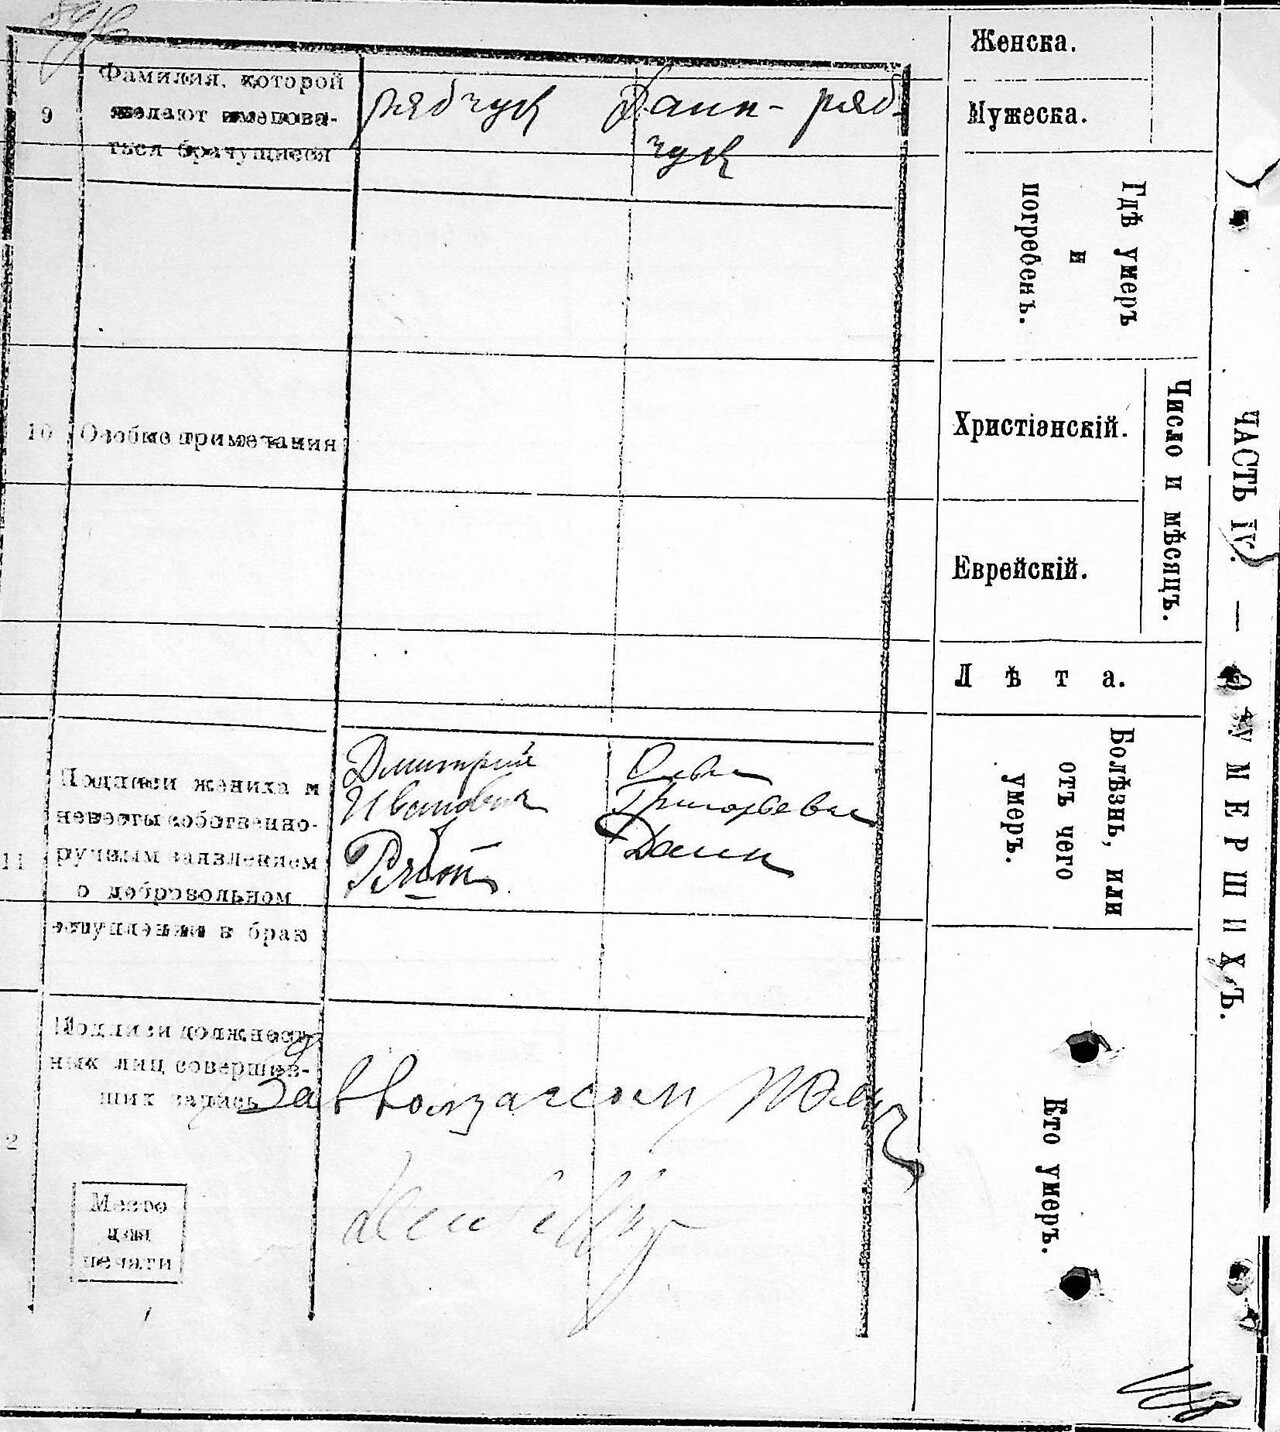 9
Фамилия, которой
желают именова-
ться брачущиеся
Рябчук
Даин- Ряб-
чук
10
Особые примечания
11
Подписи жениха и
невесты собственно-
ручным заявлением
о добровольном
вступлении в брак
Дмитрий
Иванович
Ольга
Григорьевна
Даин
Подписи должност-
ных лиц совершив-
ших запись
Завволзагсом
2
Место
для
печати
Женска.
Мужеска.
Гдѣ умеръ
и
погребенъ.
Христіанскій.
Еврейскій.
Число и мѣсяцъ.
Лѣта.
Болѣзнь, или
отъ чего
умеръ.
Кто умеръ.
ЧАСТЬ IV. — О УМЕРШИХЪ.